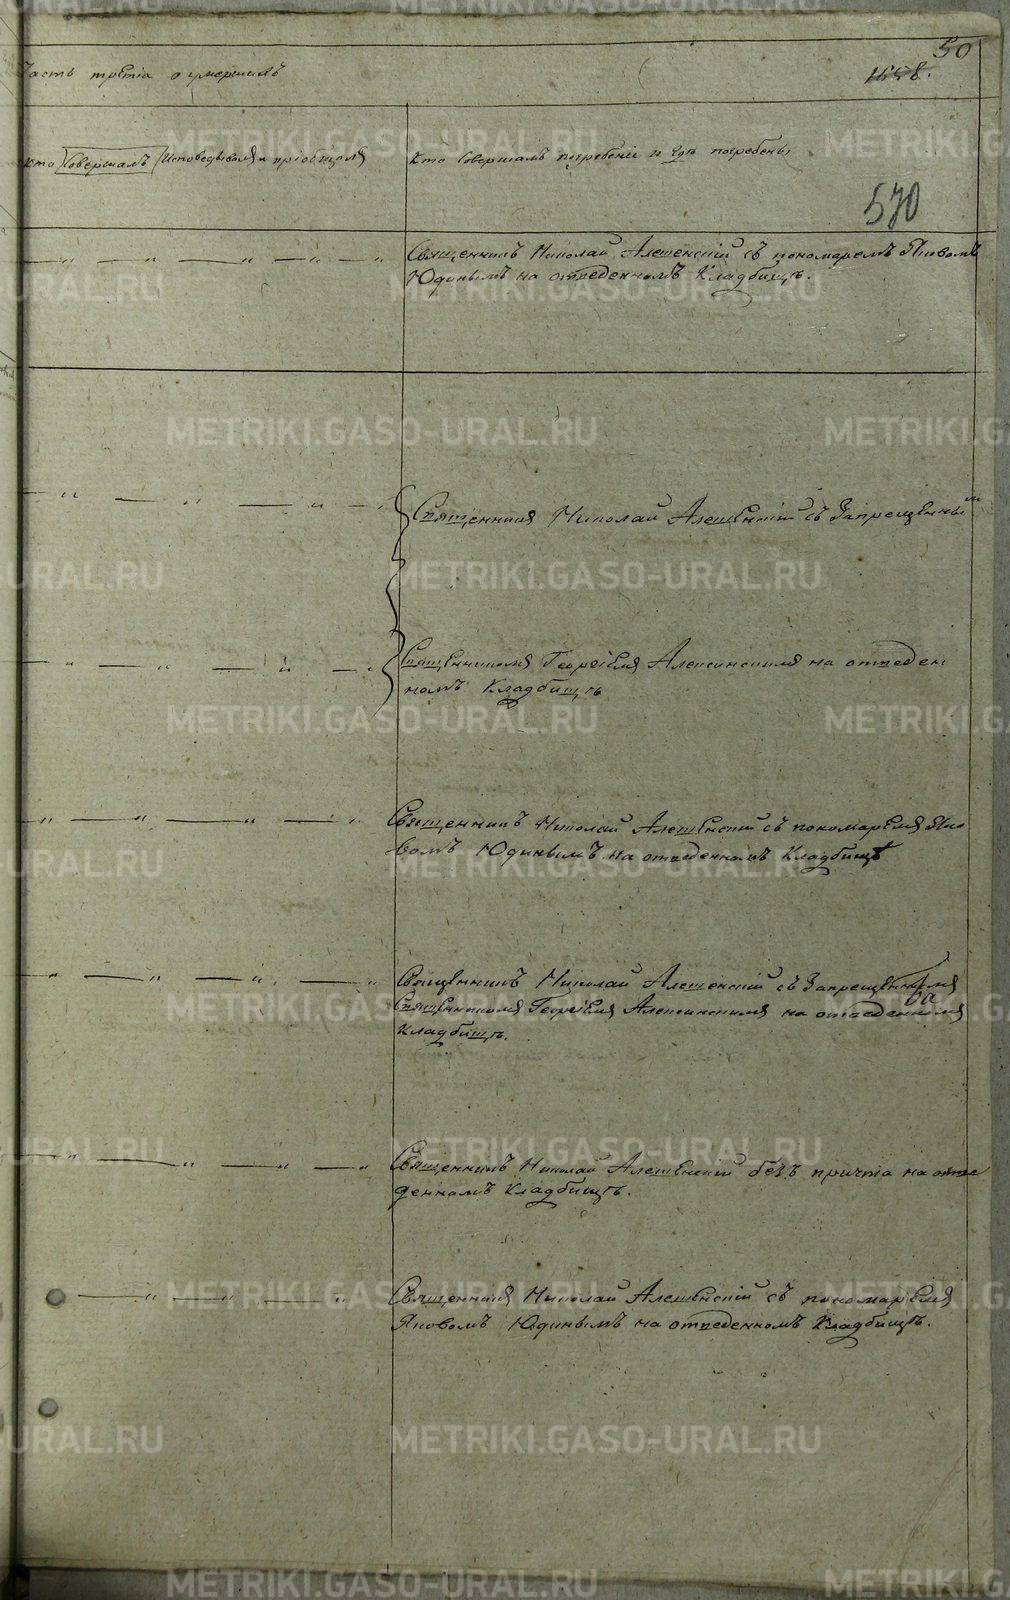 50
Часть третіа о умершихъ
1558.
кто Совершалъ Исповедывалъ и пріобщалъ
Кто Совершалъ погребеніе и где погребены
570
Священникъ Николай Алешенскій съ пономаремъ Яковомъ
Юдинымъ на отведенномъ Кладбищѣ.
Священникъ Николай Алешенскій съ Запрещеннымъ
Священникомъ Георгіемъ на отведен
номъ Кладбищѣ
Священникъ Николай Алешенскій съ пономаремъ Яко
вомъ Юдинымъ на отведенномъ Кладбищѣ
Священникъ Николай Алешенскій съ Запрещеннымъ
Священникомъ Георгіемъ на отведенномъ
Кладбищѣ.
Священникъ Николай Алешенскій безъ причта на отве
денномъ Кладбищѣ.
Священникъ Николай Алешенскій съ пономаремъ
Яковомъ Юдинымъ на отведенномъ Кладбищѣ.
METRIKI.GASO-URAL.RU